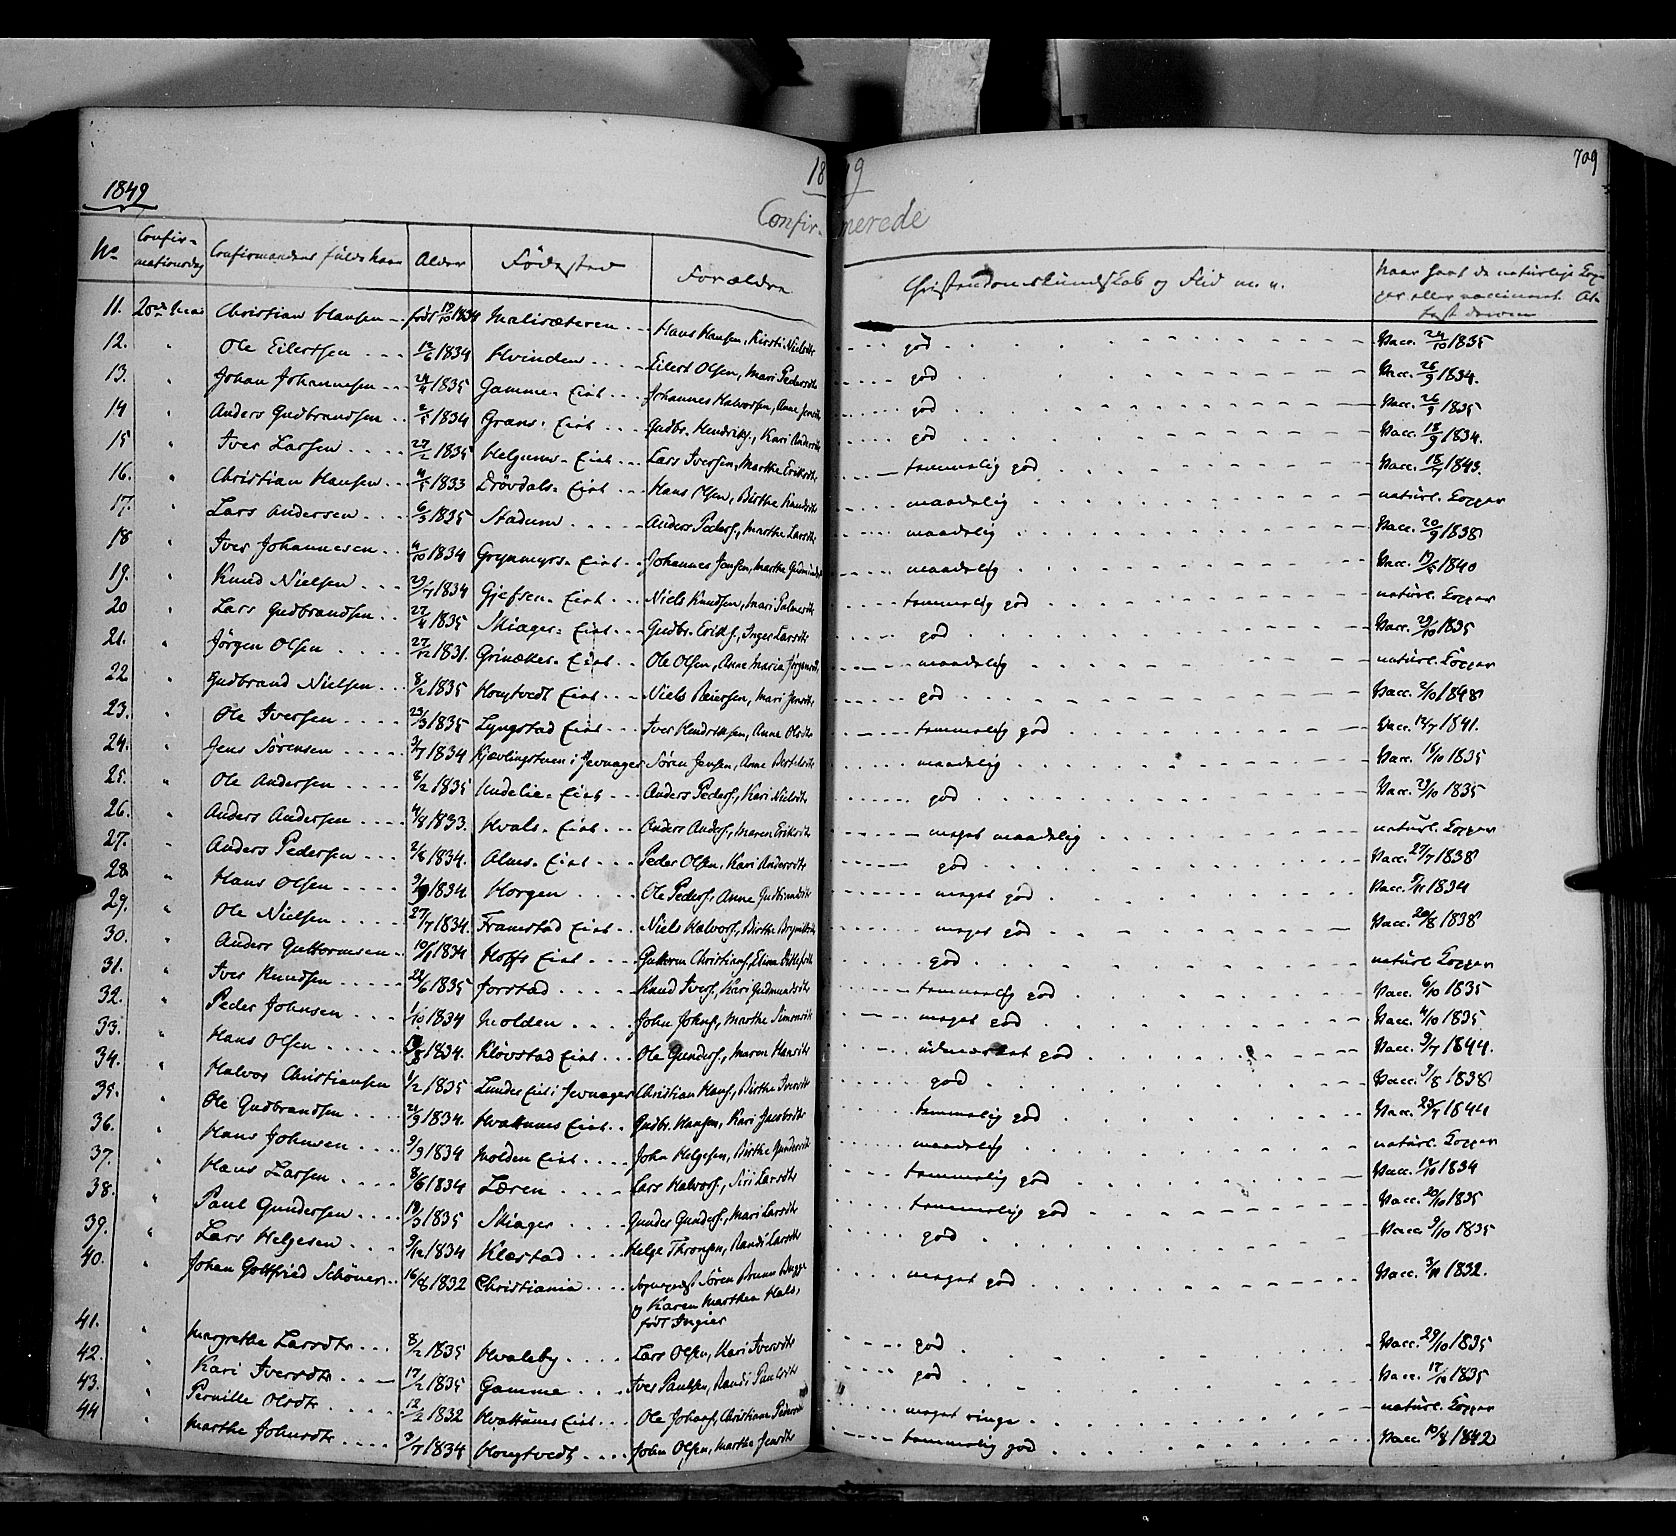 1849
1849
709
Confirmerede
No
Confirmationsdag
Confirmandens fulde Navn
Alder
Fødested
Forældre
Christendomskundskab og Flid m. v.
naar havt de naturlige Kopper eller vaccineret. Attest derom
11. Christian Hansen født 1834 Hans Hansen, Kirsti Nielsdtr god Vacc. 24/10 1835
12. " Ole Eilertsen 12/6 1834 Hvinden Eilert Olsen, Mari Pedersdtr god Vacc. 26/9 1834.
13. " Johan Johannesen 1835 Gamme-Eiet Johannes Halvorsen, Anne Jensdtr god Vacc. 26/9 1835
14 " Anders Gudbrandsen 1834 Grans-Eiet Gudbr. Hendriks., Kari Andersdtr god Vacc. 18/9 1834.
15 " Iver Larsen 27/2 1835 Helgums-Eiet Lars Iversen, Marthe Eriksdtr temmelig god Vacc. 1843.
16. " Christian Hansen 1833 Drövdals-Eiet Hans Olsen, Birthe Knudsdtr maadelig naturl. Kopper
17. " Lars Andersen 6/3 1835 Stadum Anders Peders., Marthe Larsdtr maadelig Vacc. 20/9 1838
18 " Iver Johannesen 4/10 1834 Grynmyrs-Eiet Johannes Jensen, Marthe maadelig Vacc. 1840
19. " Knud Nielsen 29/7 1834 Gjefsen-Eiet Niels Knudsen, Mari Palmesdtr temmelig god naturl. Kopper
20 " Lars Gudbrandsen 22/4 1835 Skiager-Eiet Gudbr. Eriks., Inger Larsdtr god Vacc. 29/10 1835
21. " Jörgen Olsen 27/12 1831. Grinakers-Eiet Ole Olsen, Anne Maria Jörgensdtr maadelig naturl. Kopper
22 " Gudbrand Nielsen 8/2 1835 Hougtvedt Eiet Niels Reiersen, Mari Jensdtr god Vacc. 2/10 1848
23. " Ole Iversen 23/3 1835 Lyngstad Eiet Iver Hendriksen, Anne Olsdtr temmelig god Vacc. 12/7 1841.
24. " Jens Sörensen 3/7 1834 i Jevnager Sören Jensen, Anne Bertelsdtr maadelig Vacc. 1835
25. " Ole Andersen 8/2 1835 Anders Peders., Kari Nielsdtr god Vacc. 23/10 1835
26. " Anders Andersen 4/8 1833. Hvals-Eiet Anders Anders., Maren Eriksdtr meget maadelig naturl. Kopper
27. " Anders Pedersen 2/8 1834. Alms-Eiet Peder Olsen, Kari Andersdtr god Vacc. 27/7 1838
28 " Hans Olsen 1834 Horgen Ole Peders. Anne Gudbrandsdtr meget god Vacc. 1834
29. " Ole Nielsen 27/7 1834. Framstad Eiet Niels Halvors., Birthe meget god Vacc. 20/8 1838
30. " Anders Guttormsen 1834 Hoffs Eiet Guttorm Christians., Eline god naturl Kopper
31. " Iver Knudsen 22/6 1835 Jorstad Knud Ivers., Kari Gudmundsdtr temmelig god Vacc. 6/10 1835
32. " Peder Johnsen 1/10 1834 Molden John Johns., Marthe Simensdtr meget god Vacc. 4/10 1835
33. " Hans Olsen 1834. Klövstad Eiet Ole Gunders., Maren Hansdtr udmærket god Vacc. 3/7 1844.
34. " Halvor Christiansen 1/2 1835 Lundes Eiet i Jevnager Christian Hans., Birthe Iversdtr god Vacc. 9/8 1838
35. " Ole Gudbrandsen 21/9 1834. Hvattums Eiet Gudbr. Hansen, Kari Jacobsdtr temmelig god Vacc. 1844
36. " Hans Johnsen 9/9 1834 Molden Eiet John Helgesen, Birthe Gundersdtr maadelig naturl. Kopper
37. " Hans Larsen 8/6 1834 Læren Lars Halvors., Siri Larsdtr temmelig god Vacc. 12/10 1834
38. " Paul Gundersen 18/3 1835 Skiager Gunder Gunders., Mari Larsdtr temmelig god Vacc. 20/10 1835
39. " Lars Helgesen 9/12 1834 Klæstad Helge Thronsen, Randi Larsdtr god Vacc. 9/10 1835
40. " Johan Gottfried Schöner 16/8 1832 Christiania Sogneprest Sören Brunn Bugge meget god Vacc. 1832.
og Karen Marthea Hals,
født Ingier
41. " Margrethe Larsdtr 8/2 1835 Hvaleby Lars Olsen, Kari Iversdtr god Vacc. 29/10 1835
42. " Kari Iversdtr 17/2 1835 Gamme Iver Paulsen, Randi Paulsdtr god Vacc. 17/10 1835
43. " Pernille Olsdtr 12/2 1832 Hvattums Eiet Ole Johans., Christiane Pedersdtr meget ringe naturl. Kopper
44 " Marthe Johnsdtr 3/7 1834 Hougtvedt John Olsen, Marthe Jensdtr temmelig god Vacc. 10/8 1842